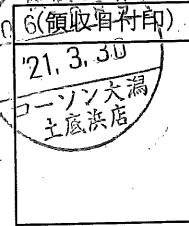 6(領収日付印)
'21.3.30
ローソン大潟
土底浜店